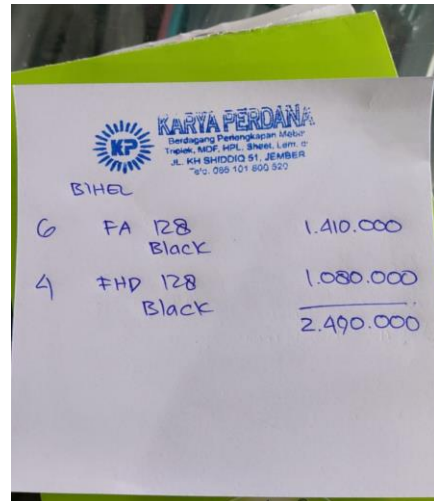 KP
KARYA PERDANA
Berdagang Perlengkapan Mebel
Triplek, MDF, HPL, Sheet, Lem, dll
JL. KH SHIDDIQ 51, JEMBER
Telp. 085 101 600 520
BIHEL
6 FA 128 1.410.000
Black
4 FHD 128 1.080.000
Black
2.490.000